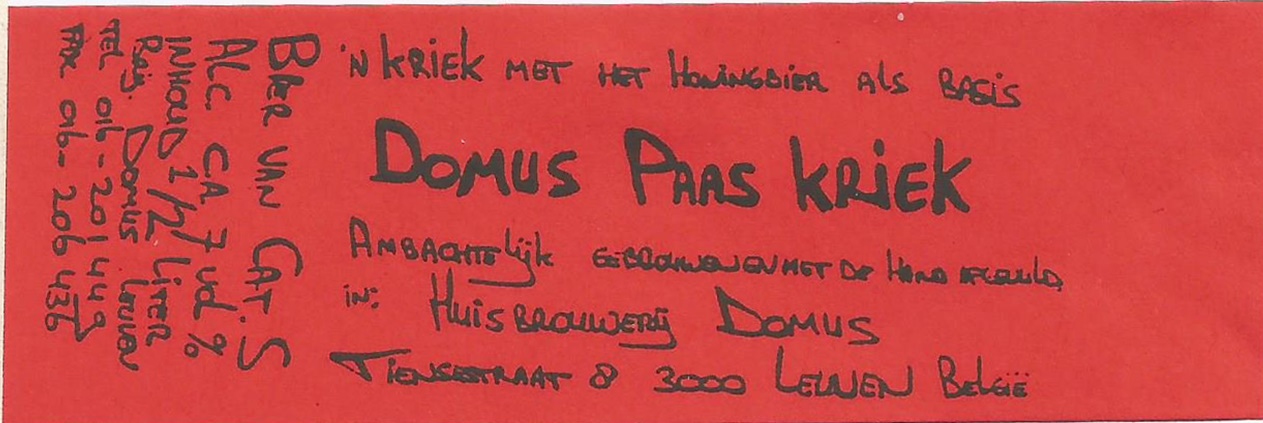 'N KRIEK MET HET HONINGBIER ALS BASIS
DOMUS PAAS KRIEK
AMBACHTELIJK GEBROUWEN EN MET DE HAND AFGEVULD
IN: HUISBROUWERIJ DOMUS
TIENSESTRAAT 8 3000 LEUVEN BELGIË
BIER VAN CAT. S
ALC CA 7 vol %
INHOUD 1/2 LITER
Domus Leuven
TEL 016-201449
FAX 016-206436